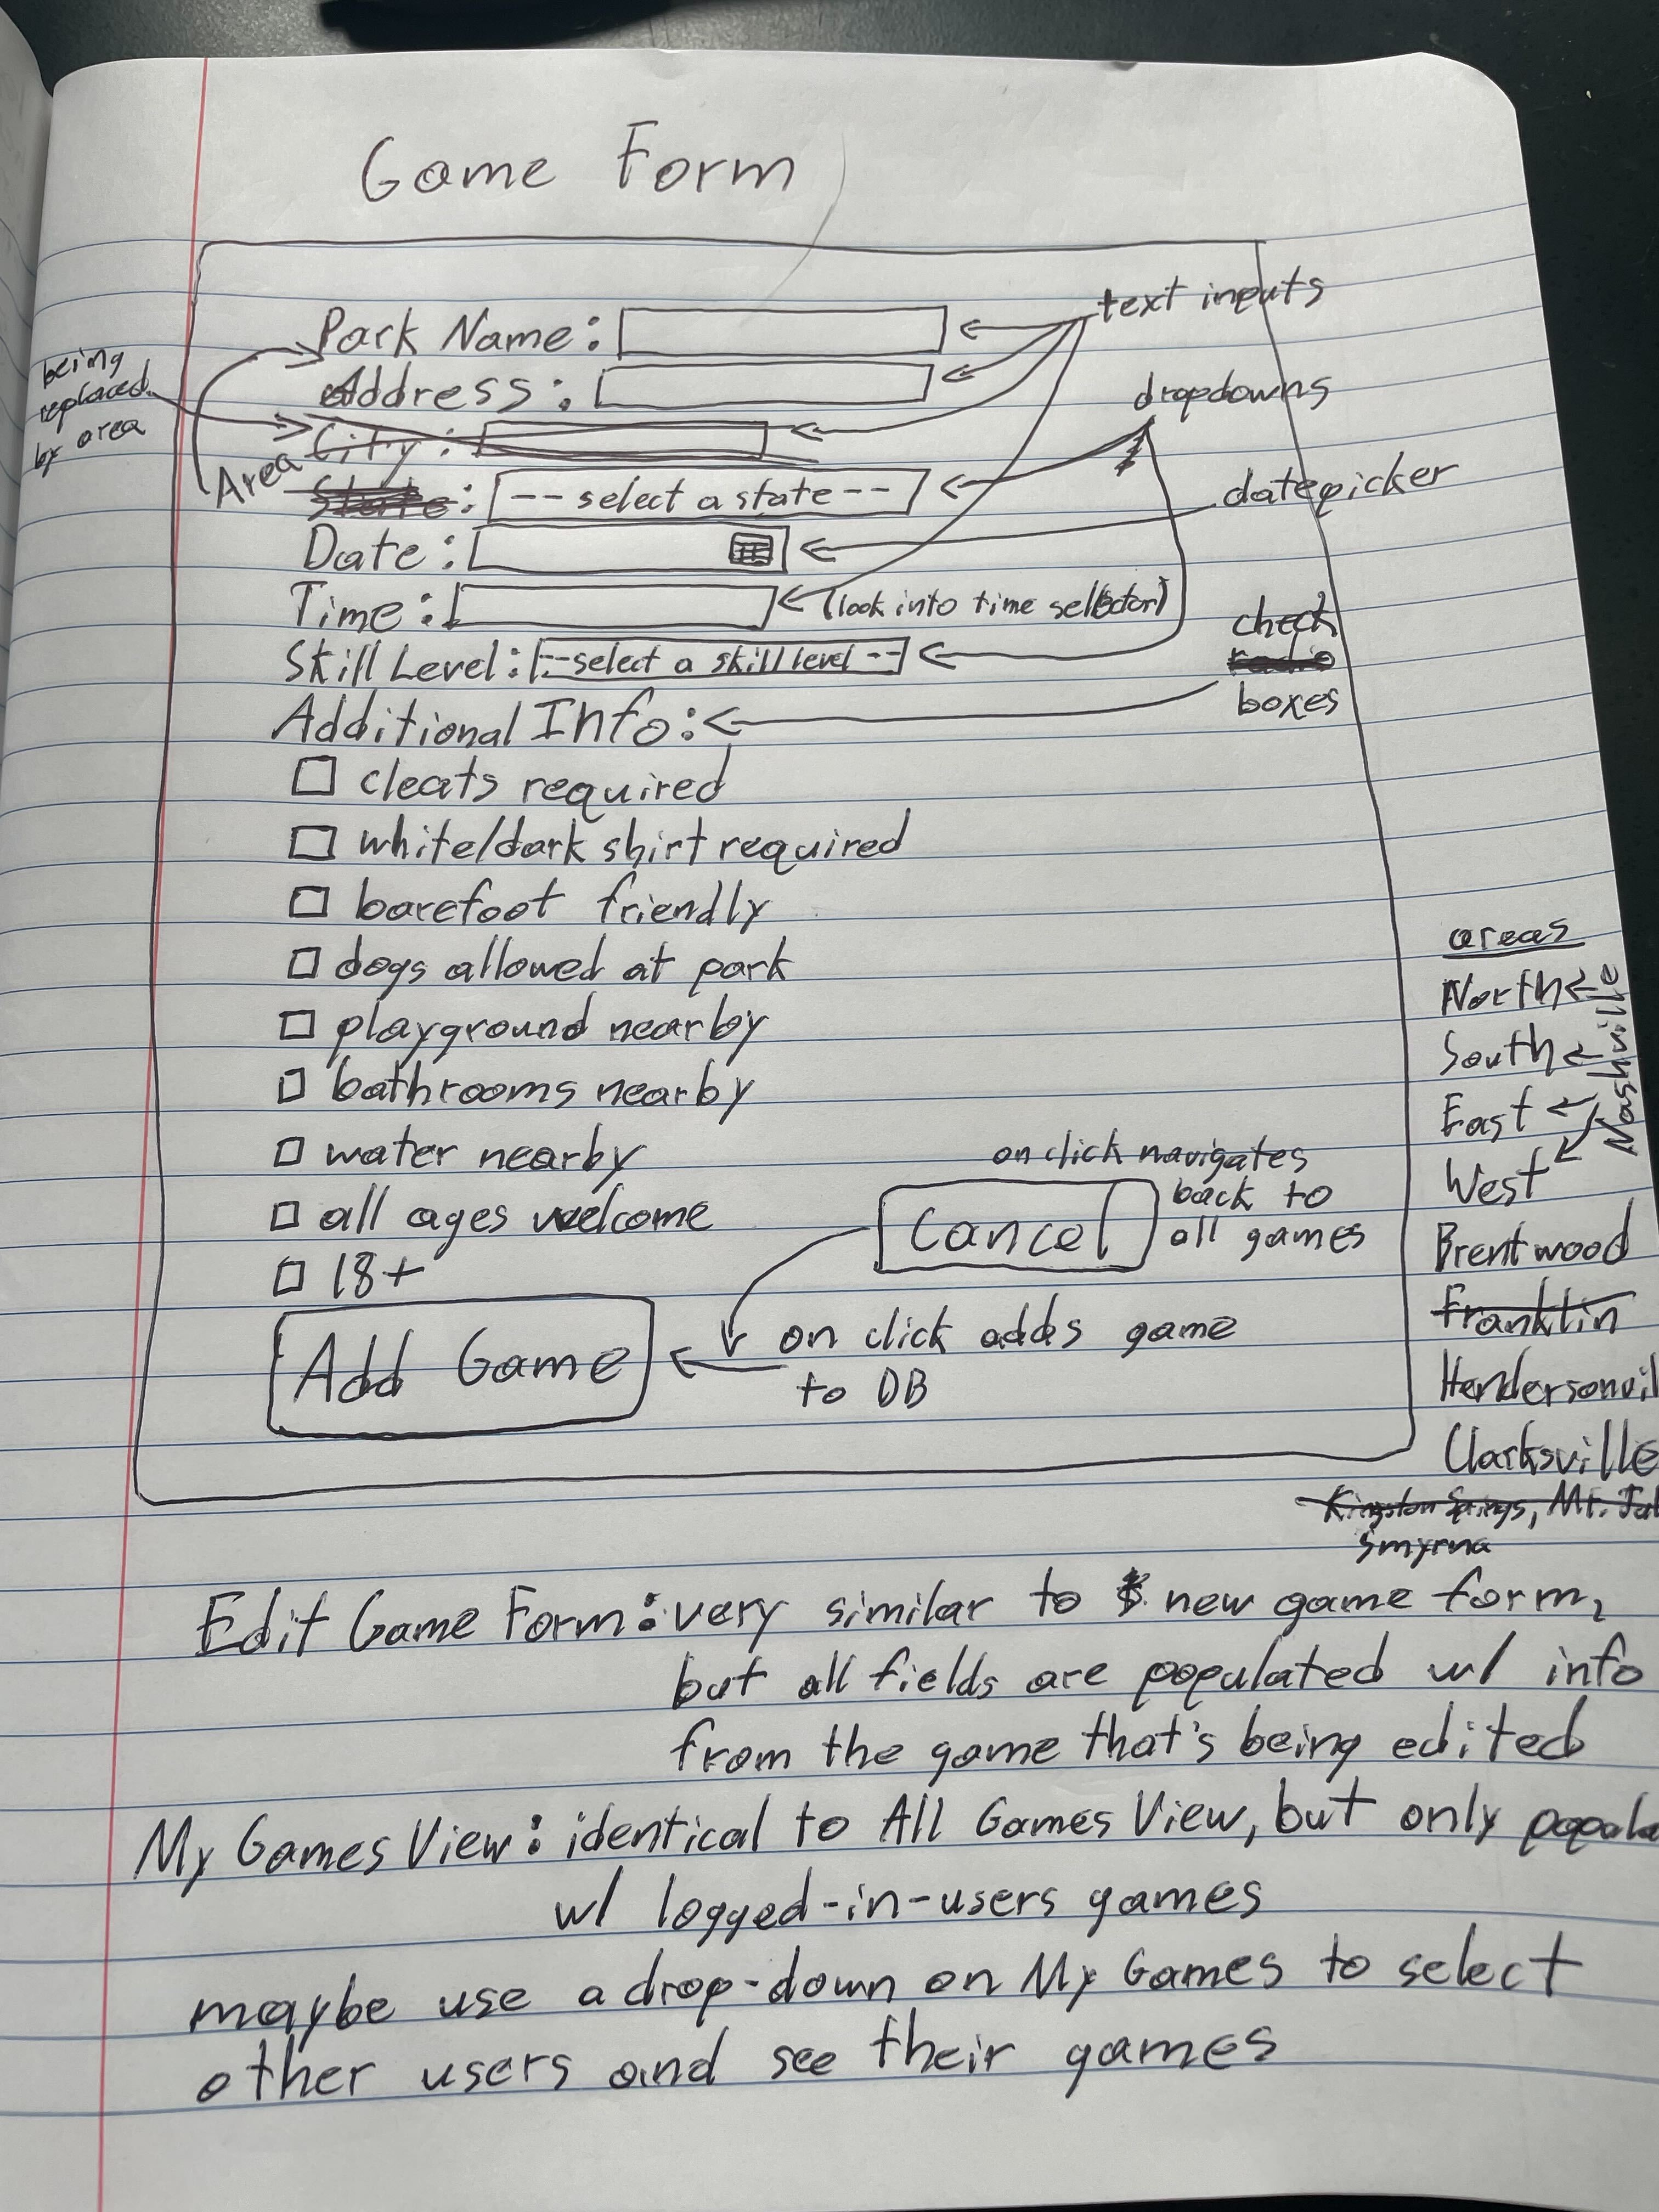 Game Form
text inputs
Park Name:
being
replaced
by area
Address:
dropdowns
City:
Area
State: -- select a state --
datepicker
Date:
Time: (look into time selector)
Skill Level: --select a skill level --
check
radio
boxes
Additional Info:
cleats required
white/dark shirt required
barefoot friendly
dogs allowed at park
playground nearby
bathrooms nearby
water nearby
all ages welcome
18+
on click navigates
back to
all games
Cancel
Add Game
on click adds game
to DB
areas
North
South
East
West
Nashville
Brentwood
Franklin
Hendersonvil
Clarksville
Kingston Springs, Mt. Jul
Smyrna
Edit Game Form: very similar to new game form,
but all fields are populated w/ info
from the game that's being edited
My Games View: identical to All Games View, but only popula
w/ logged-in-users games
maybe use a drop-down on My Games to select
other users and see their games